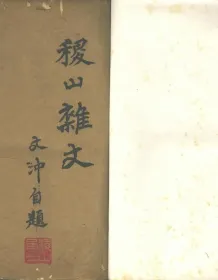 稷山雜文
文沖自題